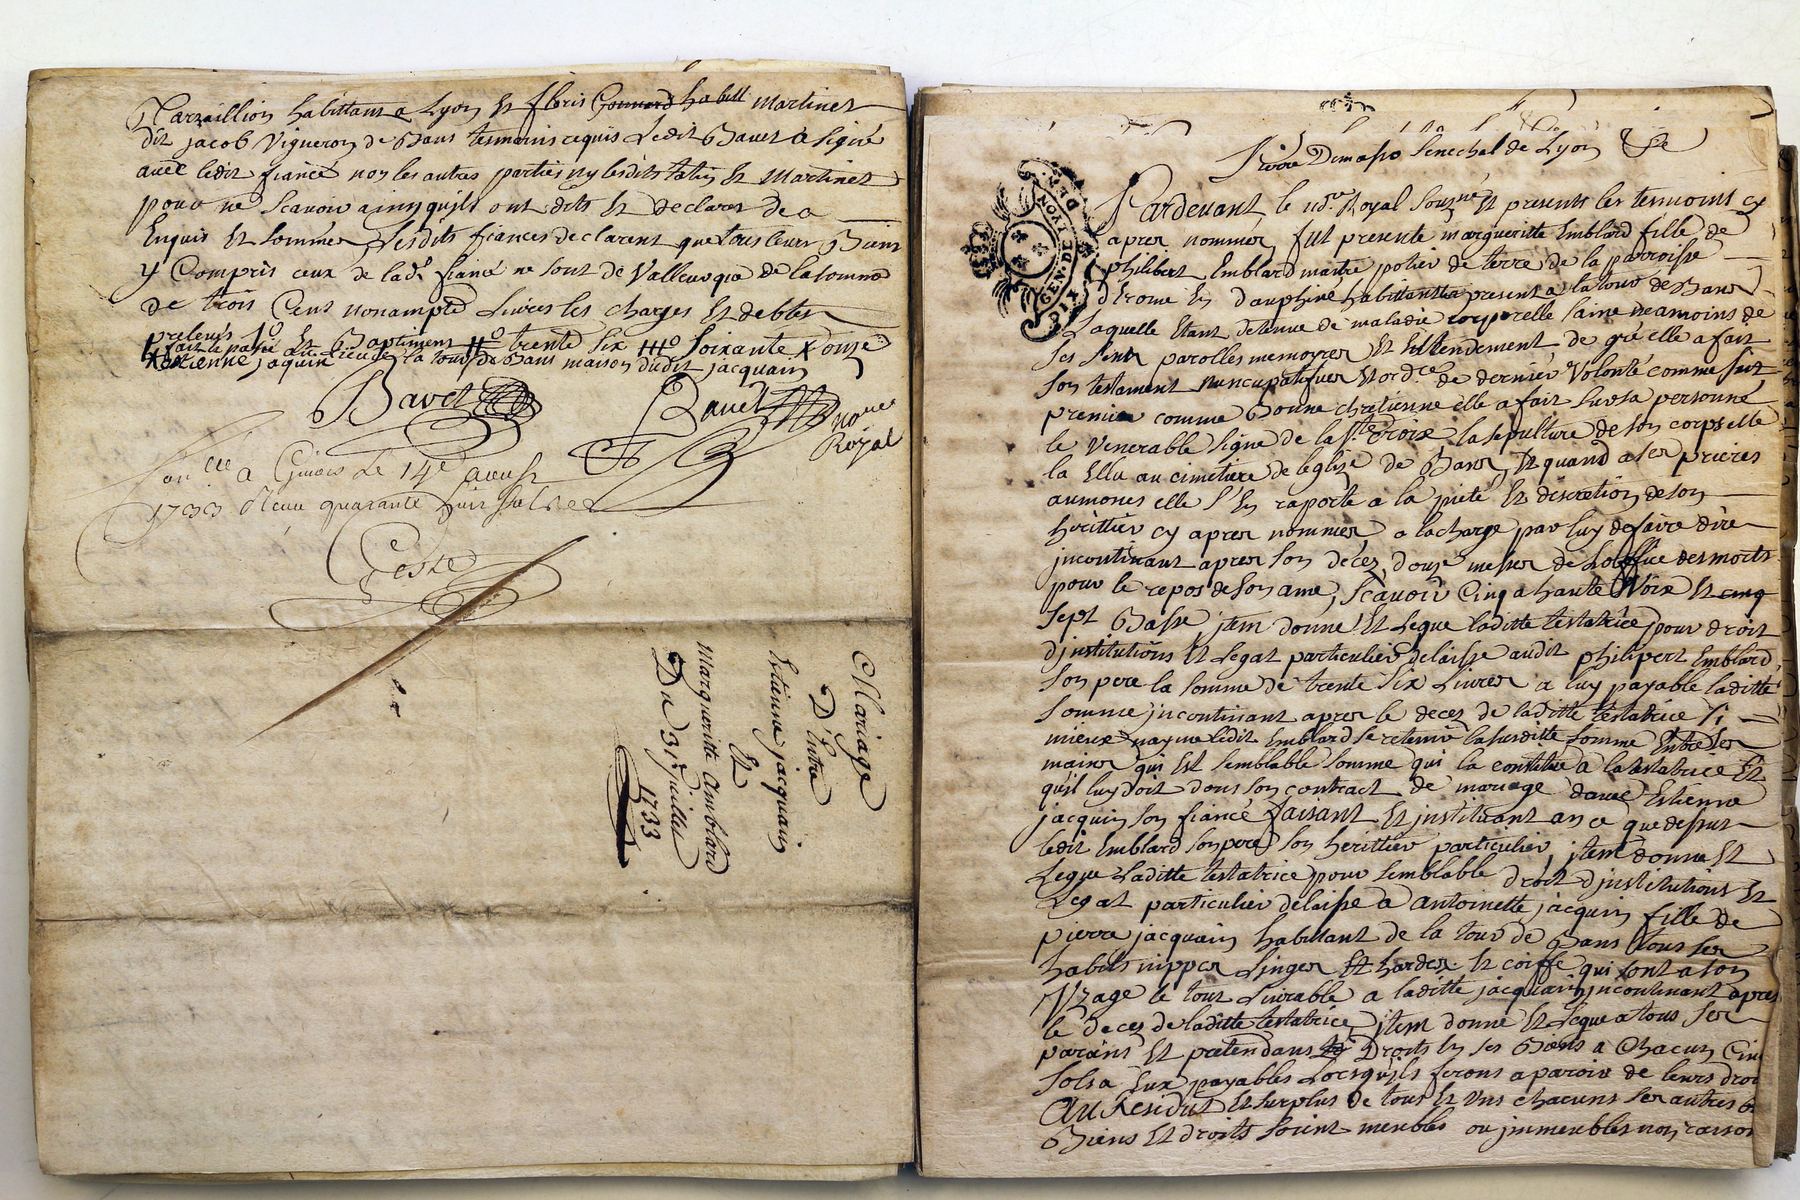 Marzaillion habittans a Lyon Et floris Gonnard habitt Martinet
dit jacob Vigneron de Bans temoins requis Ledit Bavet a signé
avec ledit fiancé non les autres parties ny lesdits et Martinet
pour ne scavoir ainsy quils ont dits Et declarés de a
Enquis Et sommés, Lesdits fiances declarent que tous leurs Biens
y Compris ceux de lad.e fiancé ne sont de Valleur que de la somme
de trois Cens nonampte Livres les charges Et debtes
prelevés 1o et Baptiment IIo trente six IIIo Soixante X onze
X Estienne jaquin a la tour de Bans maison dudit jacquain
Bavet
Bavet no.re
Royal
con.llé a Givors Le 14e aoust
1733 Receu quarante huit sols
Geste
Mariage
D'Entre
Estienne jacquain
Et
Margueritte amblard
Du 31e juillet
1733
GEN. DE LYON
Pierre Demasso Senechal de Lyon
Pardevant le no.re Royal sousné Et presents les temoins cy
apres nommés, fut presente margueritte Emblard fille de
philibert Emblard maitre potier de terre de la parroisse
d'Erome En dauphiné habittante a present a la tour de Bans
Laquelle Etant detenue de maladie corporelle saine neamoins de
ses sens parolles memoyres Et Entendement de gré elle a fait
son testament nuncupatif Et ord.ce de dernier Volonté comme suit
premier comme Bonne chretienne elle a fait sur sa personne
le Venerable signe de la S.te Croix la sepulture de son corps elle
la Ellu au cimetiere de leglise de Bans, Et quand a ses prieres
aumones elle s'En raporte a la pieté Et discretion de son
herittier cy apres nommés, a la charge par luy de faire dire
incontinant apres son décez, douze messes de Loffice des morts
pour le repos de son ame, Scavoir Cinq a haute Voix Et cinq
sept Basse jtem donne Et Legue laditte testatrice pour droit
d'institutions Et Legat particulier delaisse audit philipert Emblard
son pere la somme de trente six Livres a luy payable laditte
somme jncontinant apres le decez de laditte testatrice si
mieux nayme ledit Emblard se retenir la susditte somme Entre les
mains qui Est semblable somme qui la constitué a la testatrice Et
qu'il luy doit dans son contract de mariage davec Estienne
jacquin son fiancé faisant Et instituant an ce que dessus
ledit Emblard son pere son herittier particulier, jtem donne Et
Legue Laditte testatrice pour semblable droit d'institutions Et
Legat particulier delaisse a antoinette jacquin fille de
pierre jacquain habittant de la tour de Bans tous ses
habits nippes Linges Et hardes Et coiffe qui sont a son
Uzage le tout Livrable a laditte jacquain jncontinant apres
le decez de laditte testatrice, jtem donne Et Legue a tous ses
parans Et pretendans Droits En ses Biens a Chacun Cinq
sols a Eux payables Lorsquils feront aparoir de leurs droi
Au Residut Et surplus de tous Et uns chacuns ses autres
Biens Et droits soient meubles ou jmmeubles nom raison